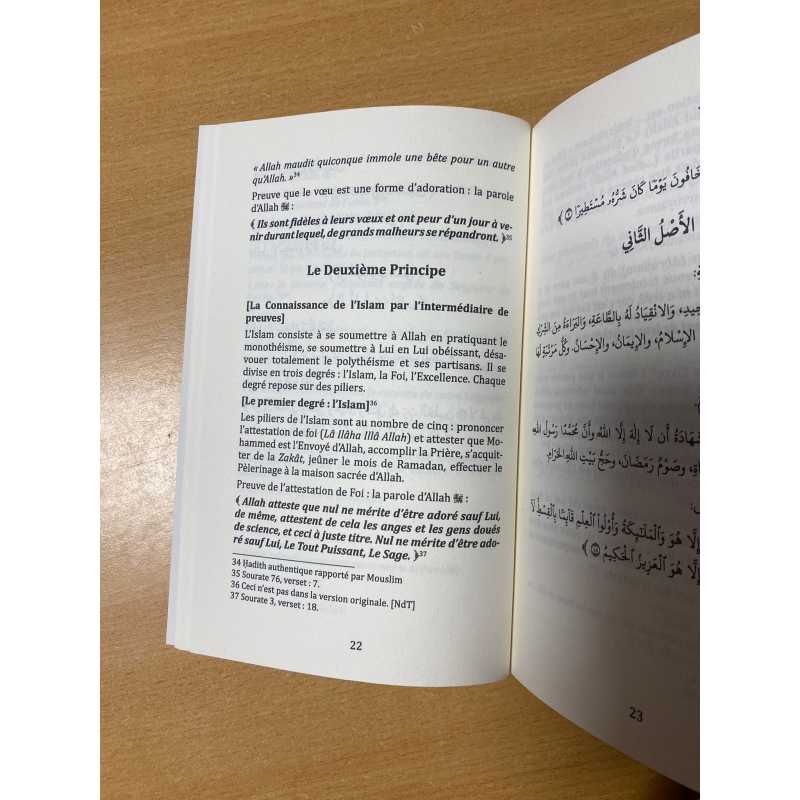 « Allah maudit quiconque immole une bête pour un autre
qu'Allah. »34
Preuve que le vœu est une forme d'adoration : la parole
d'Allah ﷻ :
﴾ Ils sont fidèles à leurs vœux et ont peur d'un jour à ve-
nir durant lequel, de grands malheurs se répandront. ﴿35
Le Deuxième Principe
[La Connaissance de l'Islam par l'intermédiaire de
preuves]
L'Islam consiste à se soumettre à Allah en pratiquant le
monothéisme, se soumettre à Lui en Lui obéissant, désa-
vouer totalement le polythéisme et ses partisans. Il se
divise en trois degrés : l'Islam, la Foi, l'Excellence. Chaque
degré repose sur des piliers.
[Le premier degré : l'Islam]36
Les piliers de l'Islam sont au nombre de cinq : prononcer
l'attestation de foi (Lâ Ilâha Illâ Allah) et attester que Mo-
hammed est l'Envoyé d'Allah, accomplir la Prière, s'acquit-
ter de la Zakât, jeûner le mois de Ramadan, effectuer le
Pèlerinage à la maison sacrée d'Allah.
Preuve de l'attestation de Foi : la parole d'Allah ﷻ :
﴾ Allah atteste que nul ne mérite d'être adoré sauf Lui,
de même, attestent de cela les anges et les gens doués
de science, et ceci à juste titre. Nul ne mérite d'être ado-
ré sauf Lui, Le Tout Puissant, Le Sage. ﴿37
34 Hadith authentique rapporté par Mouslim
35 Sourate 76, verset : 7.
36 Ceci n'est pas dans la version originale. [NdT]
37 Sourate 3, verset : 18.
22
يَوْمًا كَانَ شَرُّهُۥ مُسْتَطِيرًا ﴿٧﴾
الأَصْلُ الثَّانِي
وَالِانْقِيَادُ لَهُ بِالطَّاعَةِ، وَالبَرَاءَةُ مِنَ الشِّرْكِ
الإِسْلَامُ، والإِيمَانُ، وَالإِحْسَانُ. وَكُلُّ مَرْتَبَةٍ لَهَا
أَن لَا إِلٰهَ إِلَّا اللهُ وَأَنَّ مُحَمَّدًا رَسُولُ اللهِ
وَصَوْمُ رَمَضَانَ، وَحَجُّ بَيْتِ اللهِ الحَرَامِ.
إِلَّا هُوَ وَٱلْمَلَٰٓئِكَةُ وَأُو۟لُوا۟ ٱلْعِلْمِ قَآئِمًۢا بِٱلْقِسْطِ لَآ
إِلَّا هُوَ ٱلْعَزِيزُ ٱلْحَكِيمُ ﴿١٨﴾
23